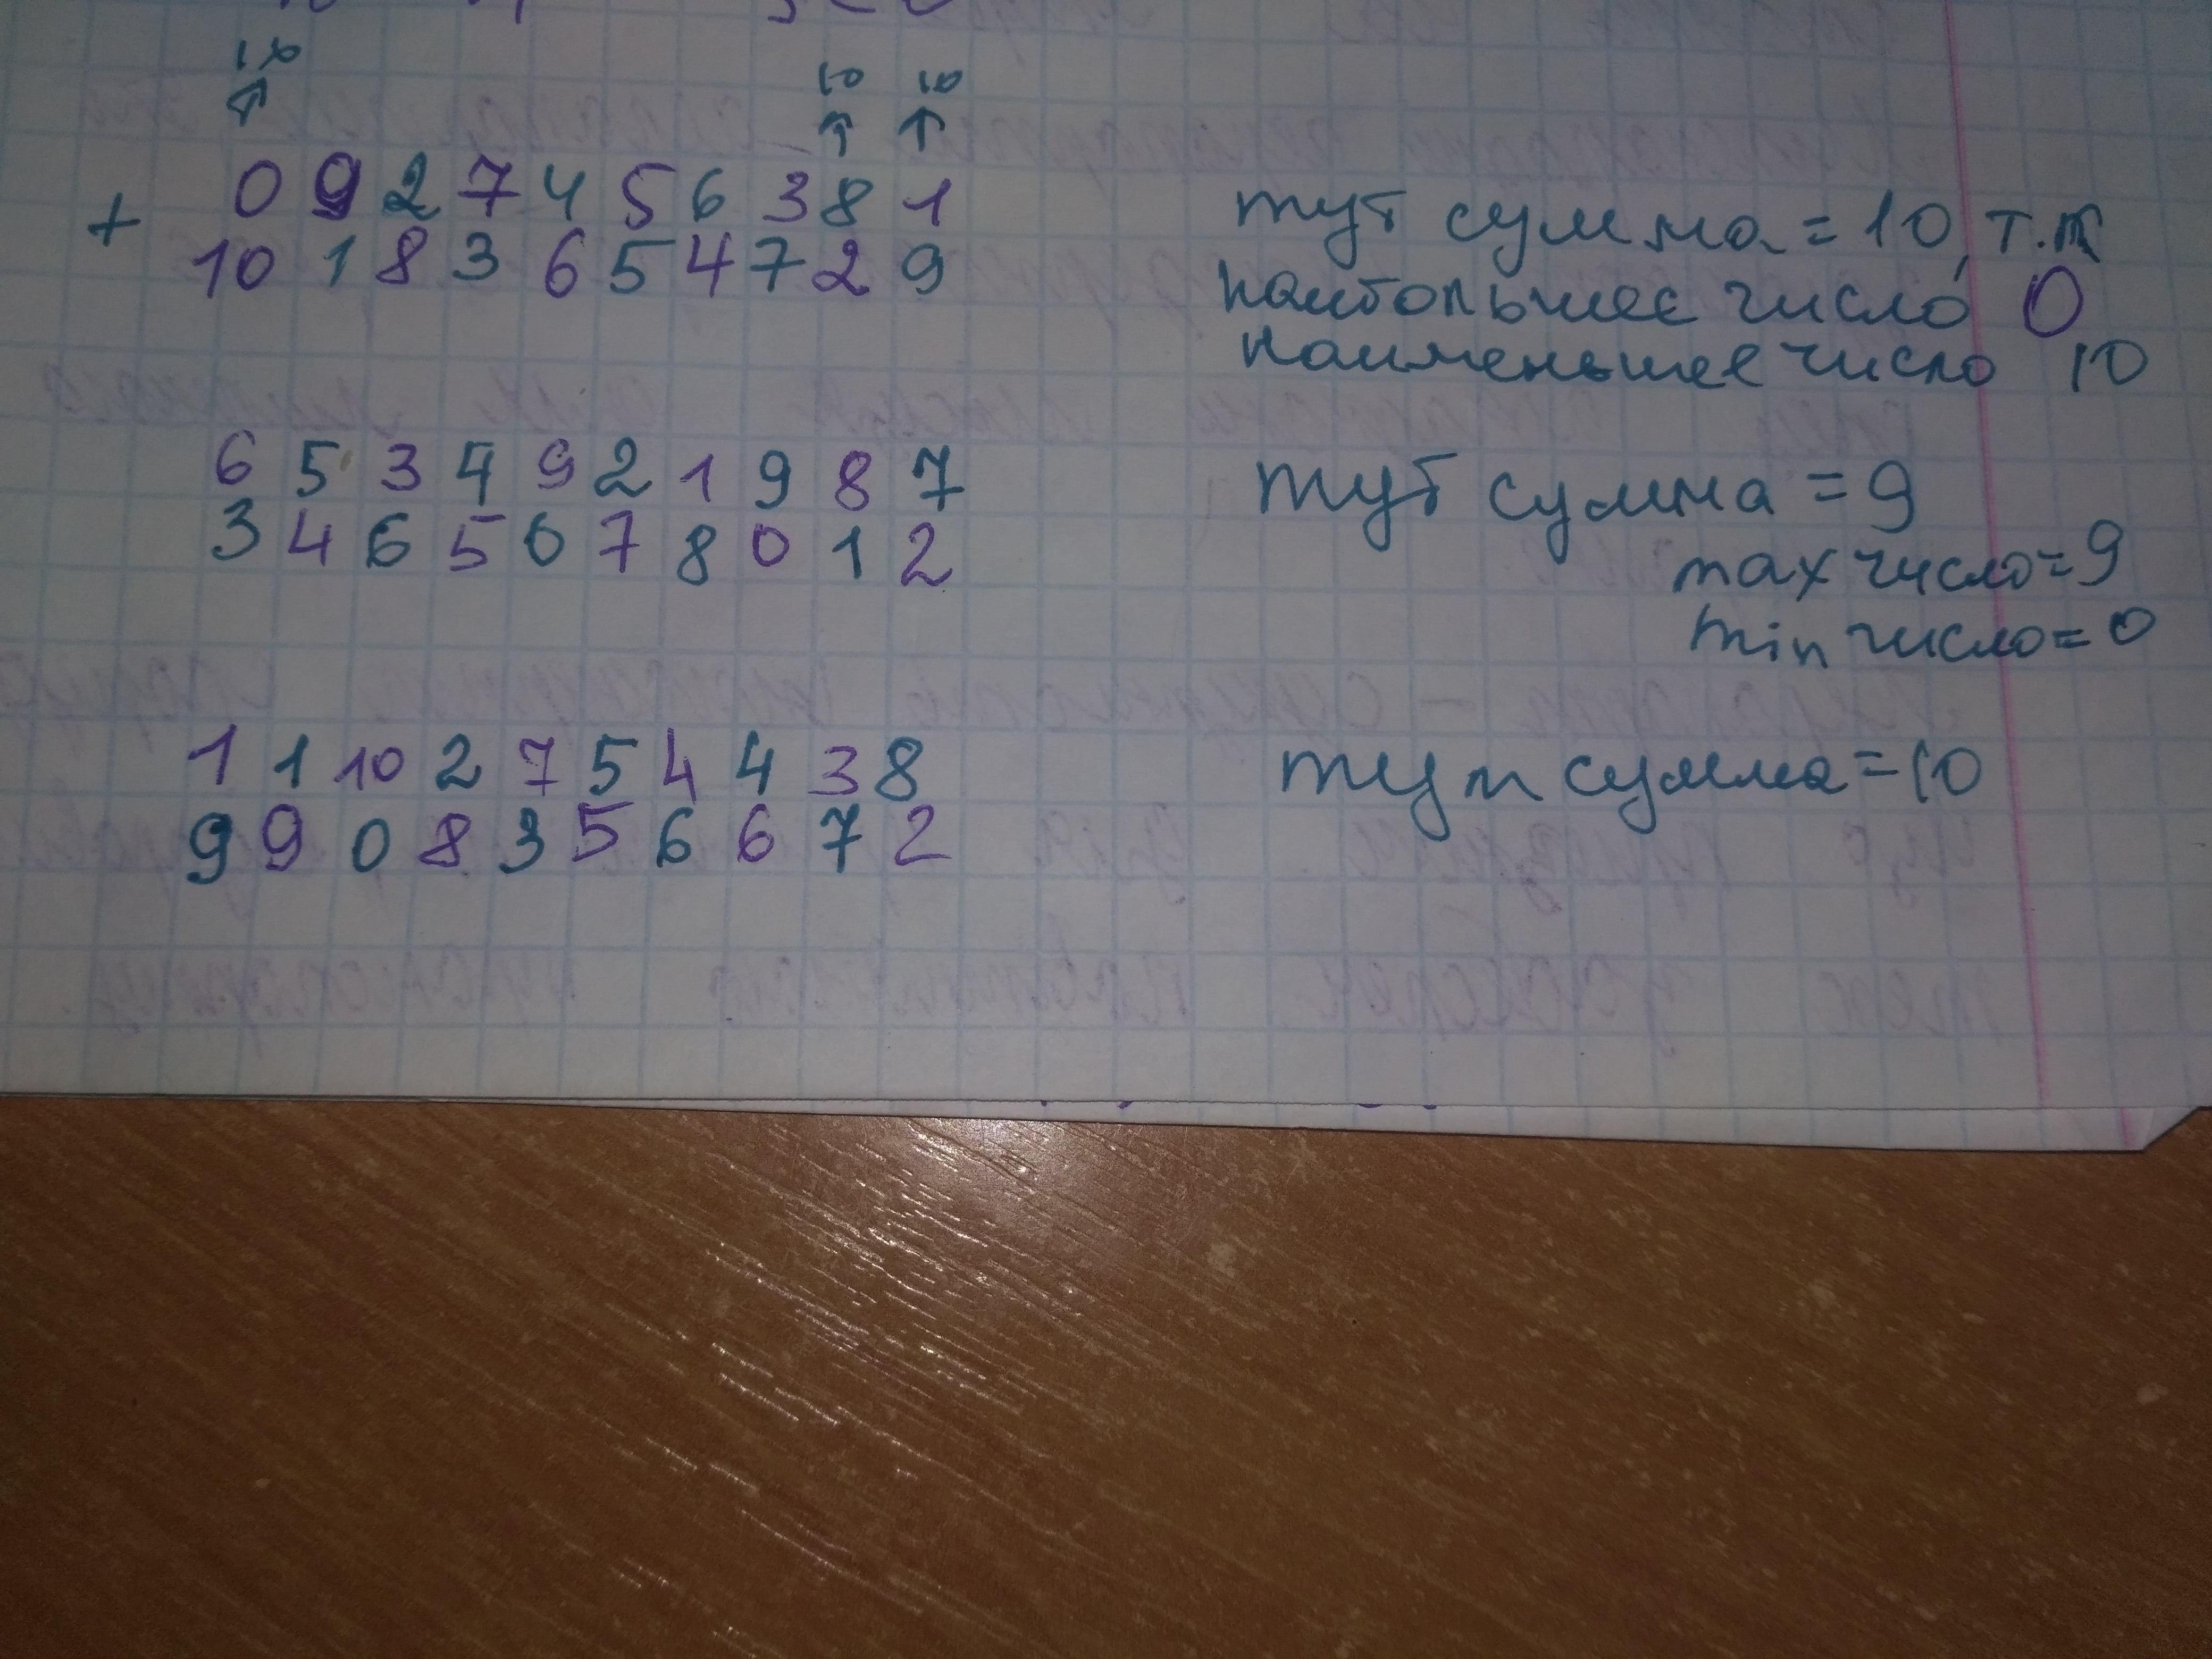 10 10 10
0 9 2 7 4 5 6 3 8 1
+
10 1 8 3 6 5 4 7 2 9
тут сумма = 10, т.к
наибольшее число 0
наименьшее число 10
6 5 3 4 9 2 1 9 8 7
3 4 6 5 0 7 8 0 1 2
тут сумма = 9
max число = 9
min число = 0
1 1 10 2 7 5 4 4 3 8
9 9 0 8 3 5 6 6 7 2
тут сумма = 10